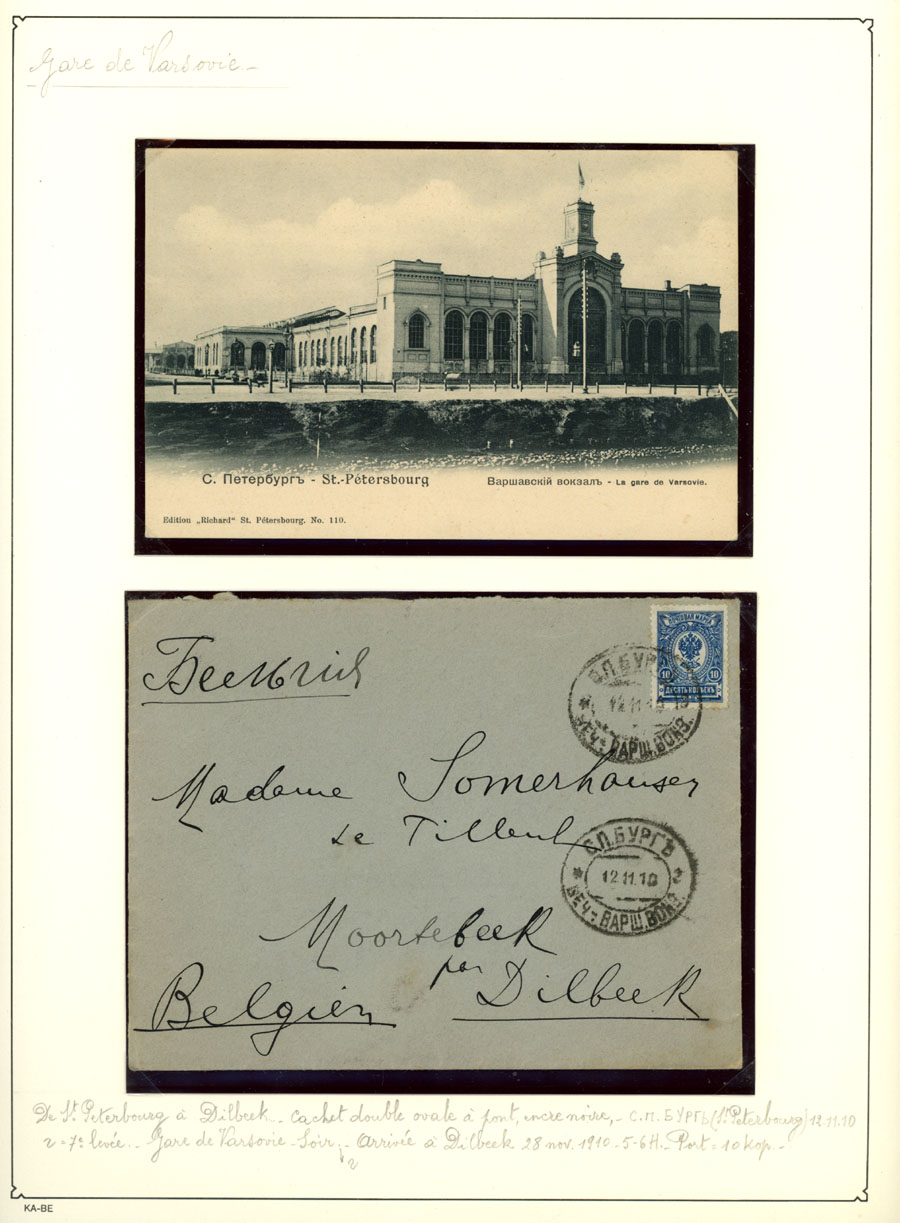 Gare de Varsovie.-
С. Петербургъ - St.-Pétersbourg
Варшавскій вокзалъ - La gare de Varsovie.
Edition „Richard“ St. Pétersbourg. No. 110.
ПОЧТОВАЯ МАРКА
10 10
ДЕСЯТЬ КОПѢЕКЪ
С.П.БУРГЪ
12 11 10
ВЕЧ= ВАРШ.ВОКЗ.
Madame Somerhausen
de Tilleul
С.П.БУРГЪ
* 12.11.10 2
ВЕЧ= ВАРШ.ВОКЗ.
Moortebeek
par Dilbeek
Belgien
De St Peterbourg à Dilbeek.. cachet double ovale à pont, encre noire, - С.П. БУРГЪ (St Peterbourg) 12.11.10
levée.. Gare de Varsovie - Soir,- Arrivée à Dilbeek 28 nov. 1910 - 5-6H. - Port = 10 kop.-
KA-BE